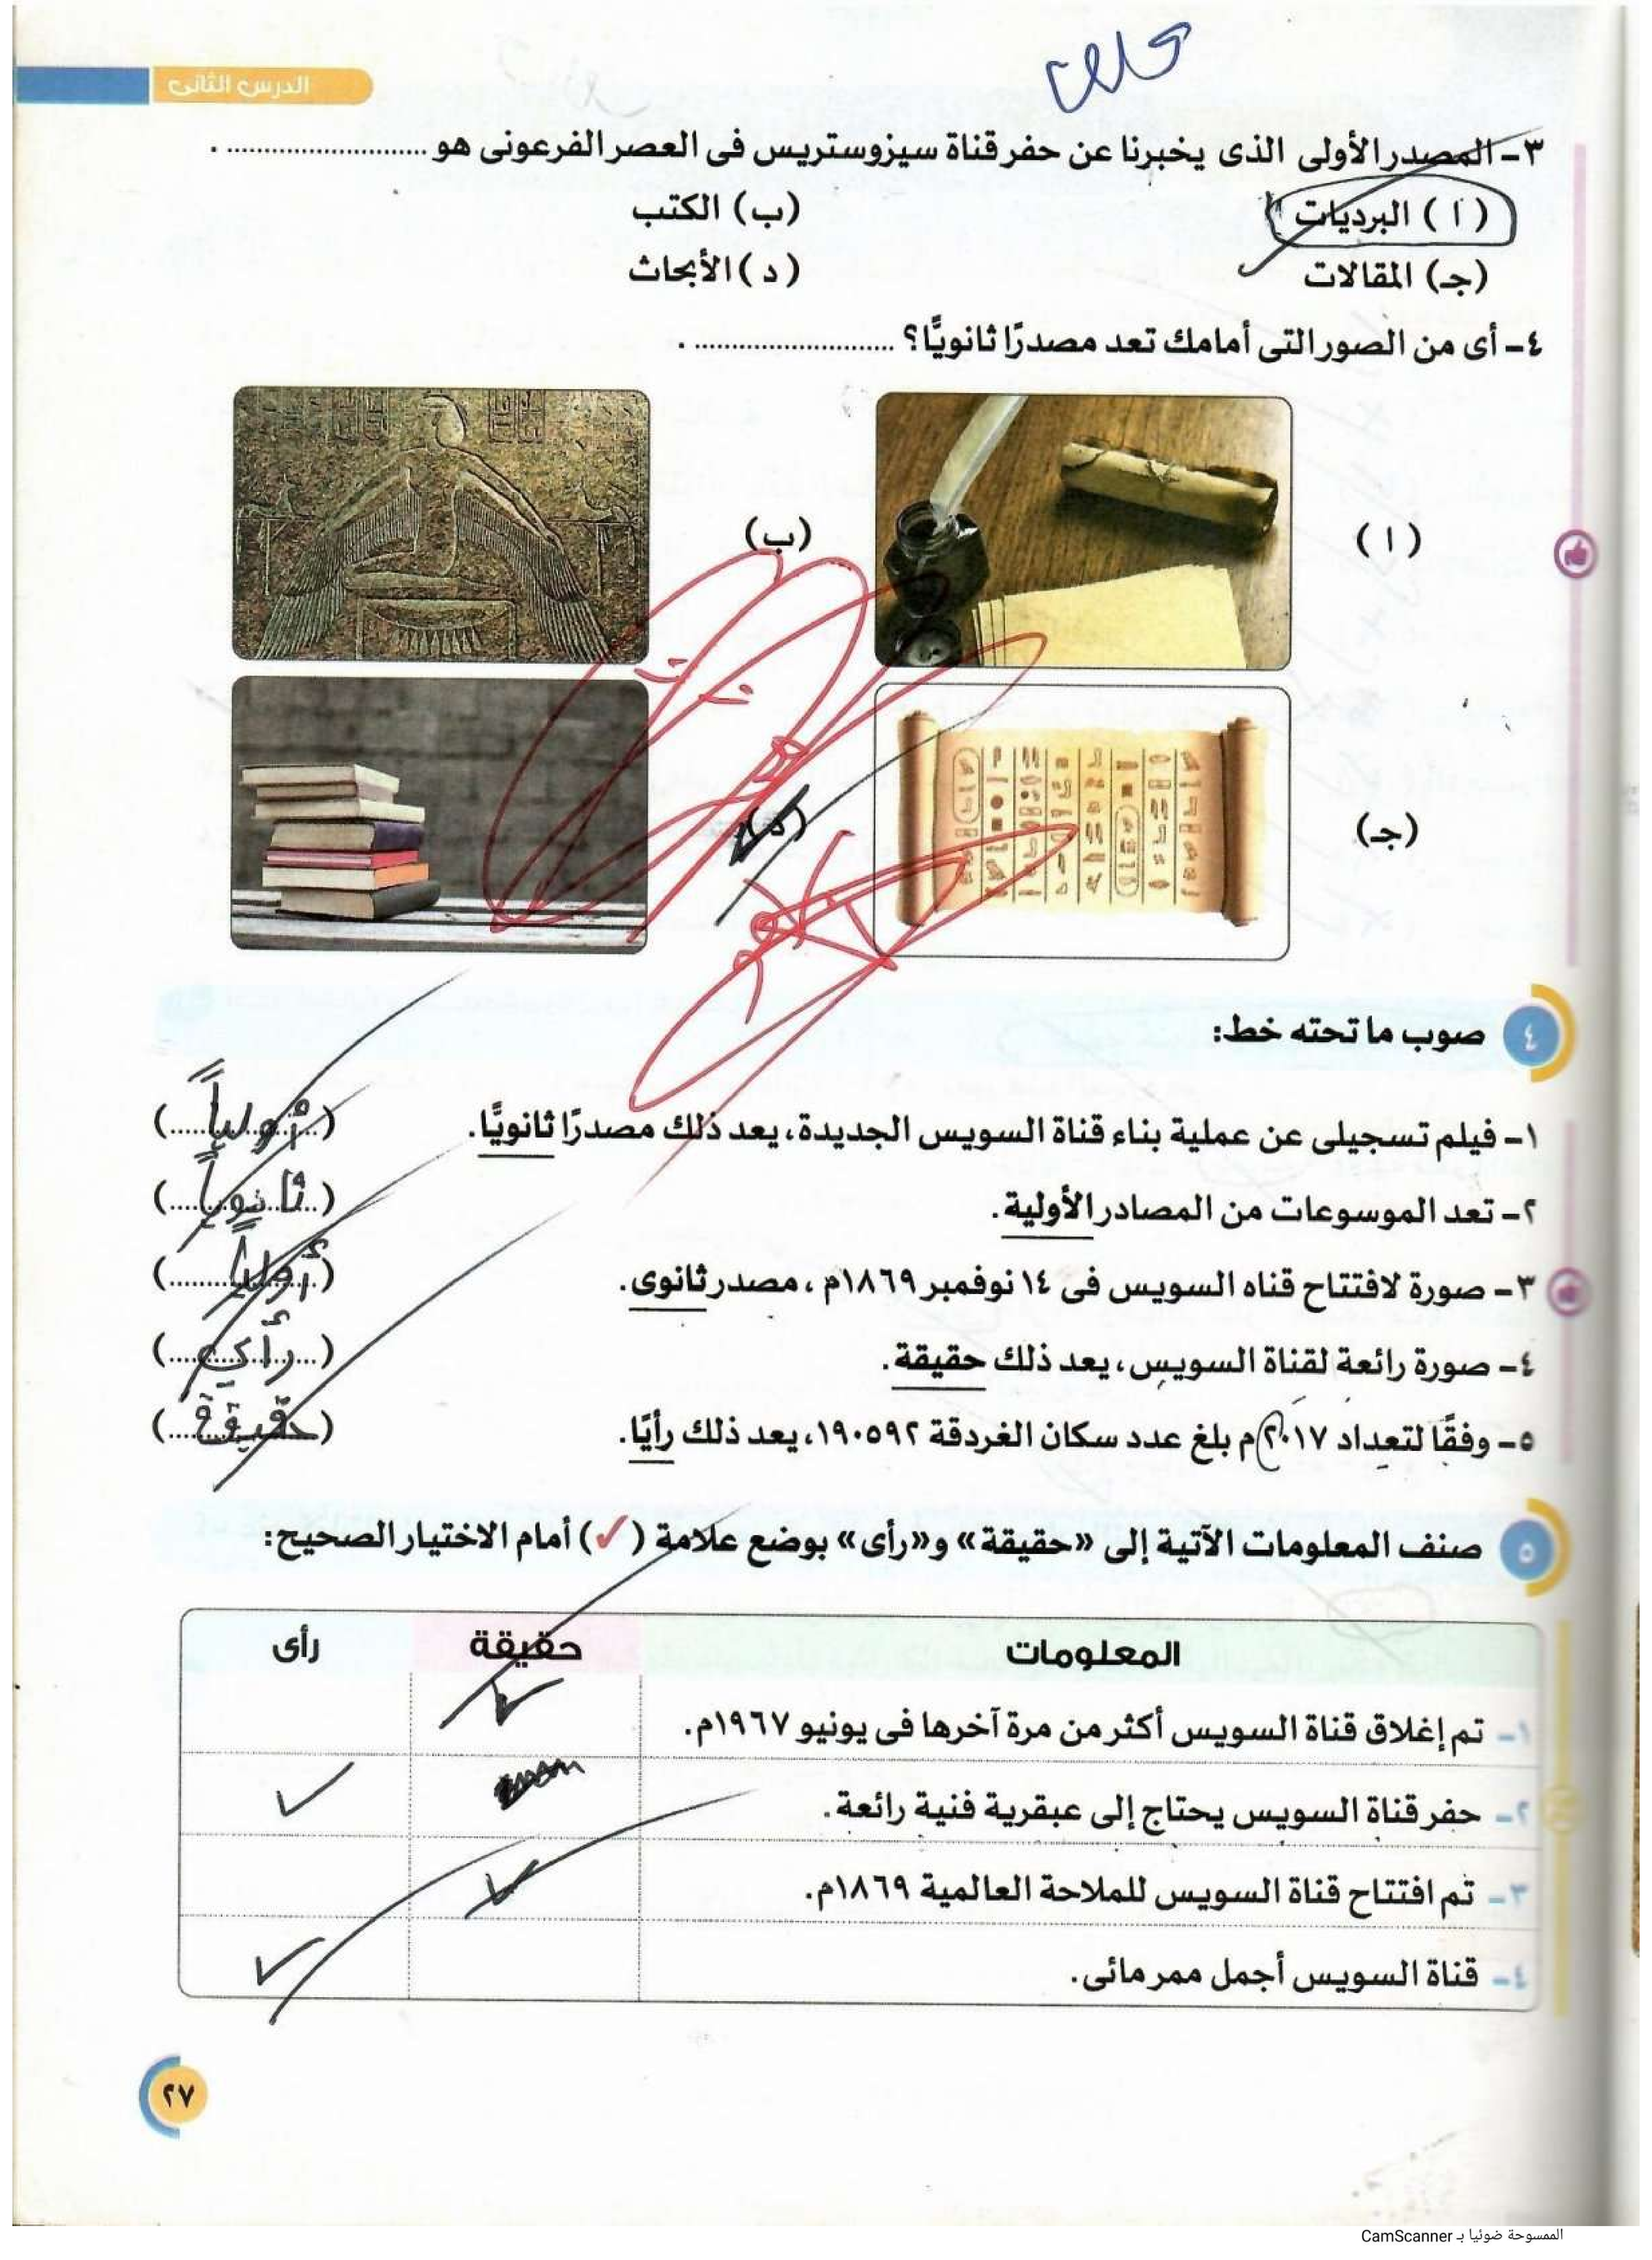 الدرس الثانى
٣- المصدر الأولى الذى يخبرنا عن حفر قناة سيزوستريس فى العصر الفرعونى هو .............................
( ا ) البرديات
(ب) الكتب
(جـ) المقالات
( د ) الأبحاث
٤- أى من الصور التى أمامك تعد مصدرًا ثانويًّا؟ .............................
( ا )
(ب)
(جـ)
(د)
٤ صوب ما تحته خط:
١- فيلم تسجيلى عن عملية بناء قناة السويس الجديدة، يعد ذلك مصدرًا ثانويًّا. (أولياً)
٢- تعد الموسوعات من المصادر الأولية. (ثانوياً)
٣- صورة لافتتاح قناه السويس فى ١٤ نوفمبر ١٨٦٩م ، مصدر ثانوى. (أولياً)
٤- صورة رائعة لقناة السويس، يعد ذلك حقيقة. (رأي)
٥- وفقًا لتعداد ٢٠١٧م بلغ عدد سكان الغردقة ١٩٠٥٩٢، يعد ذلك رأيًا. (حقيقة)
٥ صنف المعلومات الآتية إلى «حقيقة» و«رأى» بوضع علامة (✓) أمام الاختيار الصحيح:
المعلومات حقيقة رأى
١- تم إغلاق قناة السويس أكثر من مرة آخرها فى يونيو ١٩٦٧م. ✓
٢- حفر قناة السويس يحتاج إلى عبقرية فنية رائعة. ✓
٣- تم افتتاح قناة السويس للملاحة العالمية ١٨٦٩م. ✓
٤- قناة السويس أجمل ممر مائى. ✓
٢٧
الممسوحة ضوئيا بـ CamScanner